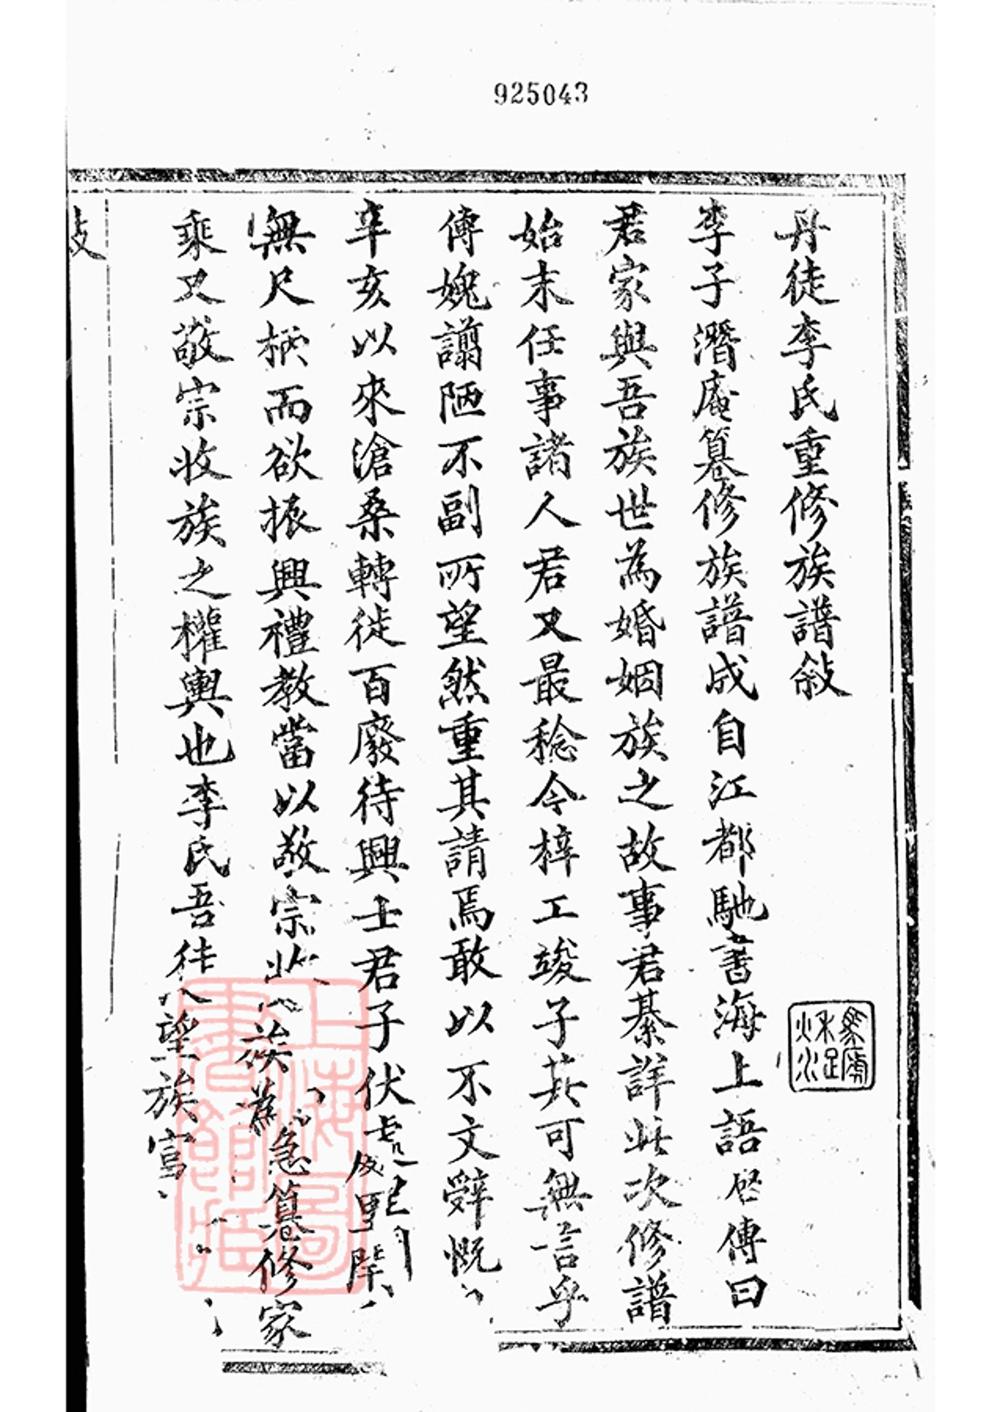 925043
丹徒李氏重修族譜敘
李子潛庵纂修族譜成自江都馳書海上語啟傳曰
君家與吾族世為婚姻族之故事君綦詳此次修譜
始末任事諸人君又最稔今梓工竣子其可無言乎
傳媿謭陋不副所望然重其請焉敢以不文辭慨
辛亥以來滄桑轉徙百廢待興士君子伏處
無尺柄而欲振興禮教當以敬宗收族為急纂修家
乘又敬宗收族之權輿也李氏吾徒望族富
敍
上海圖書館藏